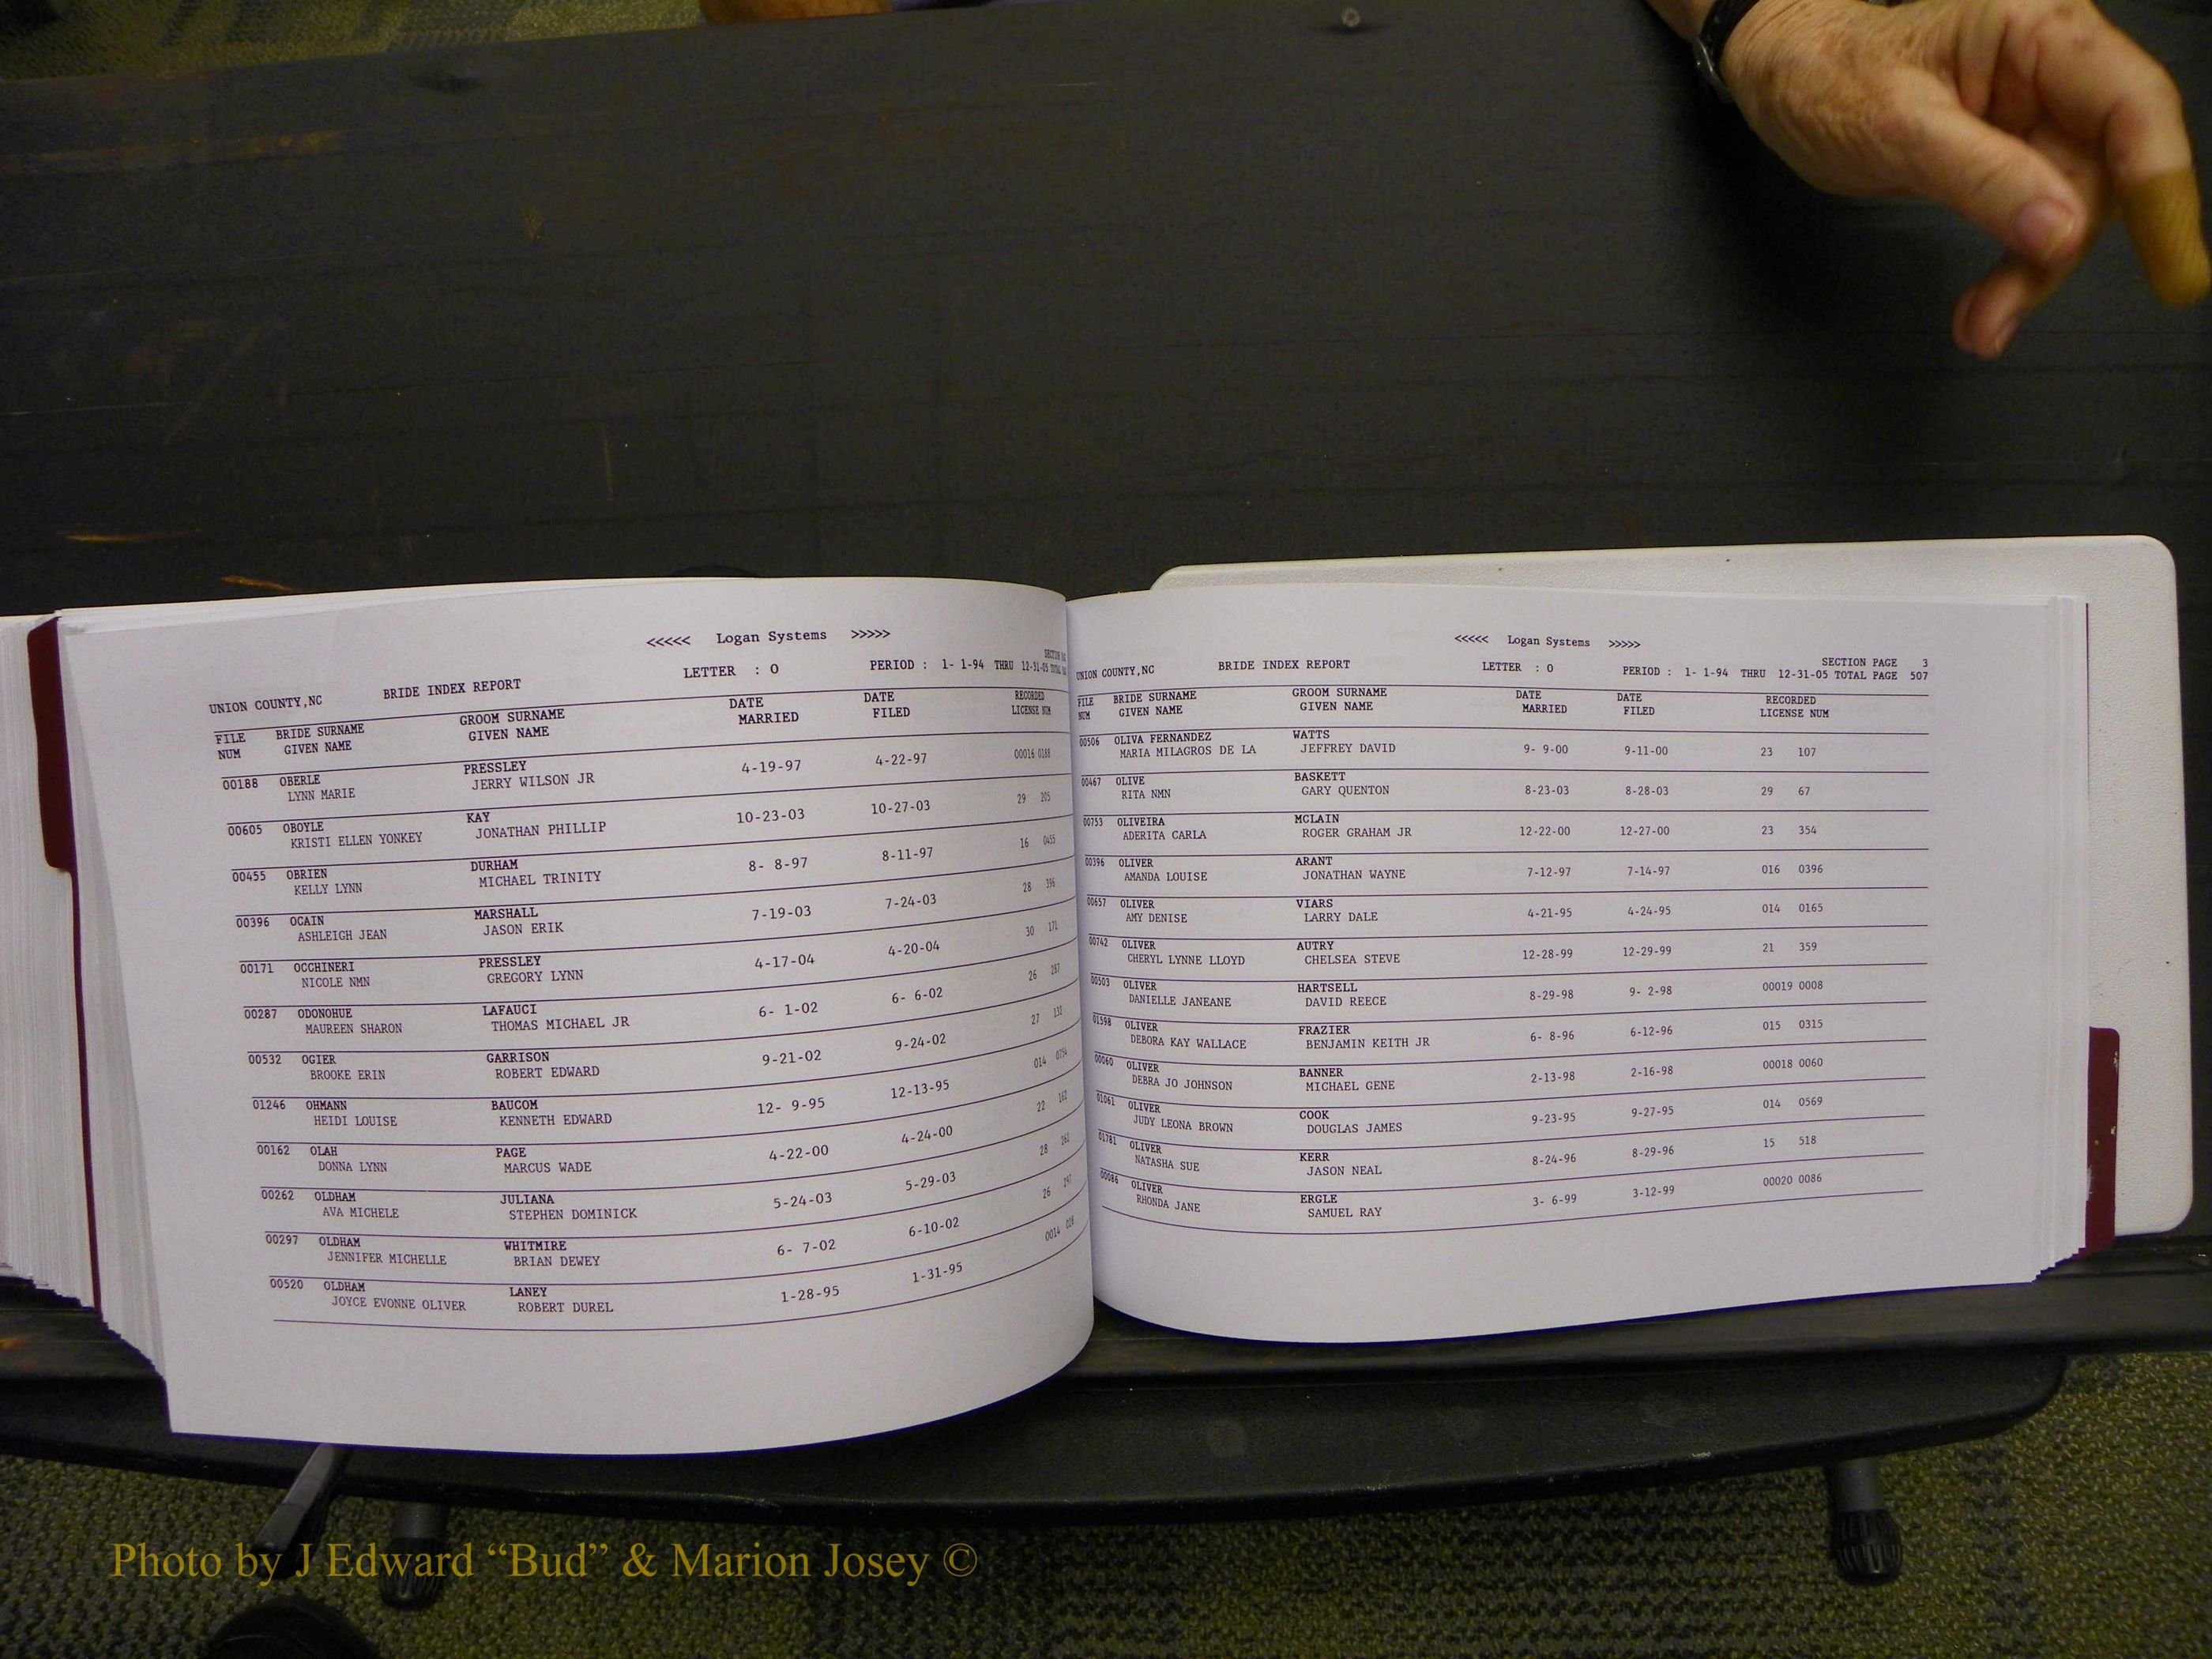 <<<<< Logan Systems >>>>>
UNION COUNTY,NC BRIDE INDEX REPORT LETTER : O PERIOD : 1- 1-94 THRU 12-31-05 TOTAL
FILE BRIDE SURNAME GROOM SURNAME DATE DATE RECORDED
NUM GIVEN NAME GIVEN NAME MARRIED FILED LICENSE NUM
00188 OBERLE PRESSLEY 4-19-97 4-22-97 00016 0188
LYNN MARIE JERRY WILSON JR
00605 OBOYLE KAY 10-23-03 10-27-03 29 205
KRISTI ELLEN YONKEY JONATHAN PHILLIP
00455 OBRIEN DURHAM 8- 8-97 8-11-97 16 0455
KELLY LYNN MICHAEL TRINITY
00396 OCAIN MARSHALL 7-19-03 7-24-03 28 396
ASHLEIGH JEAN JASON ERIK
00171 OCCHINERI PRESSLEY 4-17-04 4-20-04 30 171
NICOLE NMN GREGORY LYNN
00287 ODONOHUE LAFAUCI 6- 1-02 6- 6-02 26 287
MAUREEN SHARON THOMAS MICHAEL JR
00532 OGIER GARRISON 9-21-02 9-24-02 27 132
BROOKE ERIN ROBERT EDWARD
01246 OHMANN BAUCOM 12- 9-95 12-13-95 014
HEIDI LOUISE KENNETH EDWARD
00162 OLAH PAGE 4-22-00 4-24-00 22 162
DONNA LYNN MARCUS WADE
00262 OLDHAM JULIANA 5-24-03 5-29-03 28 262
AVA MICHELE STEPHEN DOMINICK
00297 OLDHAM WHITMIRE 6- 7-02 6-10-02 26 297
JENNIFER MICHELLE BRIAN DEWEY
00520 OLDHAM LANEY 1-28-95 1-31-95 0014
JOYCE EVONNE OLIVER ROBERT DUREL
<<<<< Logan Systems >>>>>
SECTION PAGE 3
UNION COUNTY,NC BRIDE INDEX REPORT LETTER : O PERIOD : 1- 1-94 THRU 12-31-05 TOTAL PAGE 507
FILE BRIDE SURNAME GROOM SURNAME DATE DATE RECORDED
NUM GIVEN NAME GIVEN NAME MARRIED FILED LICENSE NUM
00506 OLIVA FERNANDEZ WATTS 9- 9-00 9-11-00 23 107
MARIA MILAGROS DE LA JEFFREY DAVID
00467 OLIVE BASKETT 8-23-03 8-28-03 29 67
RITA NMN GARY QUENTON
00753 OLIVEIRA MCLAIN 12-22-00 12-27-00 23 354
ADERITA CARLA ROGER GRAHAM JR
00396 OLIVER ARANT 7-12-97 7-14-97 016 0396
AMANDA LOUISE JONATHAN WAYNE
00657 OLIVER VIARS 4-21-95 4-24-95 014 0165
AMY DENISE LARRY DALE
00742 OLIVER AUTRY 12-28-99 12-29-99 21 359
CHERYL LYNNE LLOYD CHELSEA STEVE
00503 OLIVER HARTSELL 8-29-98 9- 2-98 00019 0008
DANIELLE JANEANE DAVID REECE
01598 OLIVER FRAZIER 6- 8-96 6-12-96 015 0315
DEBORA KAY WALLACE BENJAMIN KEITH JR
00060 OLIVER BANNER 2-13-98 2-16-98 00018 0060
DEBRA JO JOHNSON MICHAEL GENE
01061 OLIVER COOK 9-23-95 9-27-95 014 0569
JUDY LEONA BROWN DOUGLAS JAMES
01781 OLIVER KERR 8-24-96 8-29-96 15 518
NATASHA SUE JASON NEAL
00086 OLIVER ERGLE 3- 6-99 3-12-99 00020 0086
RHONDA JANE SAMUEL RAY
Photo by J Edward “Bud” & Marion Josey ©